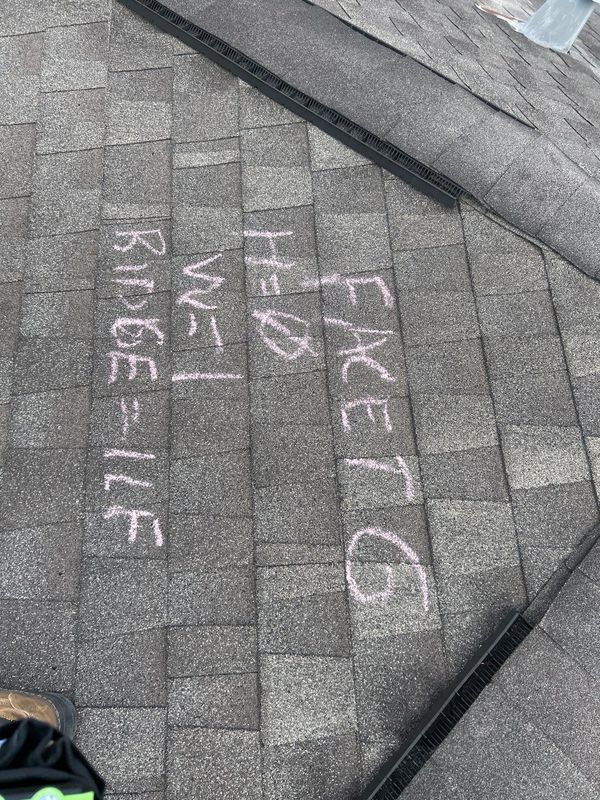 FACET G
H=Ø
W=1
RIDGE=1LF